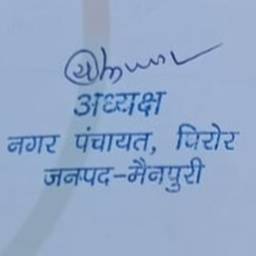 अध्यक्ष
नगर पंचायत, घिरोर
जनपद-मैनपुरी